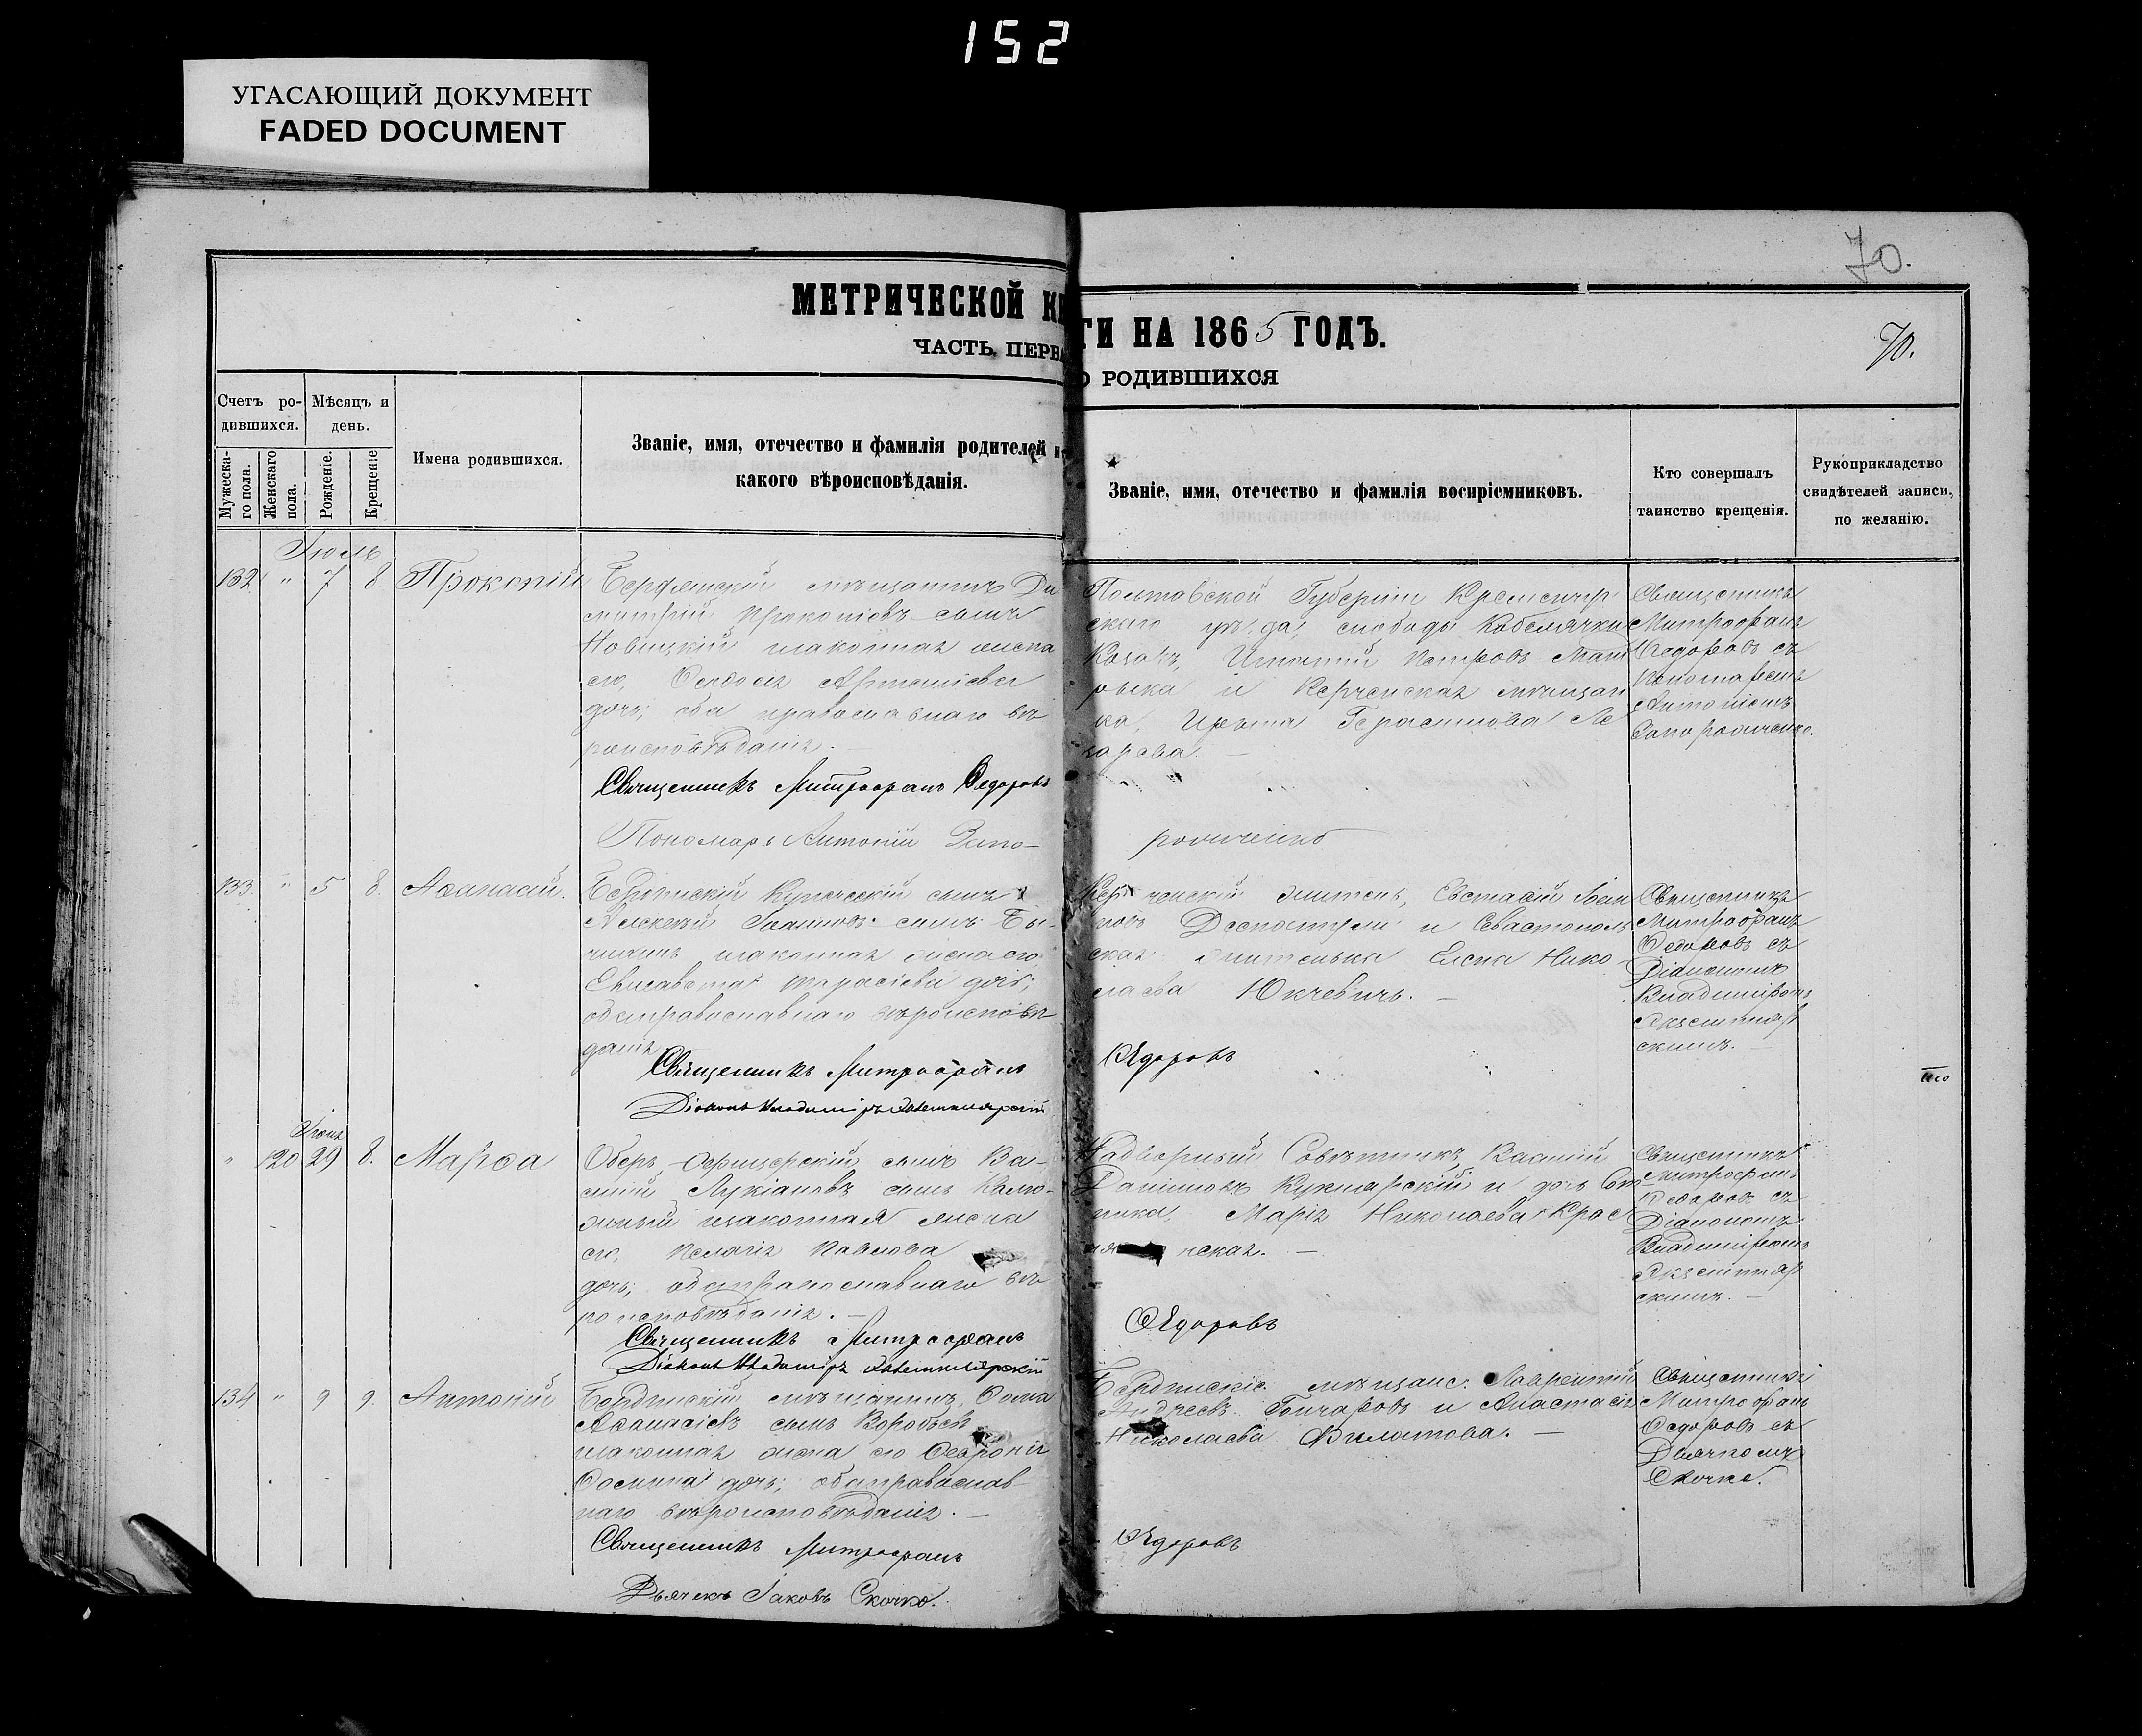 152
УГАСАЮЩИЙ ДОКУМЕНТ
FADED DOCUMENT
70.
МЕТРИЧЕСКОЙ КН
ГИ НА 1865 ГОДЪ.
70.
ЧАСТЬ ПЕРВА
О РОДИВШИХСЯ
Счетъ ро-
дившихся.
Мѣсяцъ и
день.
Мужеска-
го пола.
Женскаго
пола.
Рожденіе.
Крещеніе
Имена родившихся.
Званіе, имя, отечество и фамилія родителей и
какого вѣроисповѣданія.
Званіе, имя, отечество и фамилія воспріемниковъ.
Кто совершалъ
таинство крещенія.
Рукоприкладство
свидѣтелей записи,
по желанію.
Іюль
132 " 7 8 Прокопій
Бердянскій мѣщанинъ Ди
митрій Прокопіевъ сынъ
Новицкій законная жена
его, Ѳеодосія
дочь; оба православнаго вѣ
роисповѣданія. —
Священникъ Митрофанъ Ѳедоровъ
Пономарь Антоній Запо-
Полтавской Губерніи Кременчуг
скаго уѣзда, слободы Кобелячки
Козакъ, Игнатій Петровъ
и Керченская мѣщан
ка, Герасимова
Священникъ
Митрофанъ
Ѳедоровъ съ
Пономаремъ
Антоніемъ
Запорожченко.
рожченко
133 " 5 8. Аѳанасій.
Бердянскій Купеческій сынъ
Алексѣй Іоанновъ сынъ Бы-
законная жена его,
Елисавета Тарасіева дочь;
оба православнаго вѣроисповѣ
данія
Священникъ Митрофанъ
Діаконъ Владиміръ
Керченскій житель, Евстафій Іоан
новъ и Севастополь
ская жительница Елена Нико-
лаева Юхчевичъ. —
Ѳедоровъ
Священникъ
Митрофанъ
Ѳедоровъ съ
Діакономъ
Владиміромъ
скимъ. —
Іюнь
" 120 29 8. Марѳа
Оберъ-офицерскій сынъ Ва-
силій Лукіановъ сынъ Калю-
жный законная жена
его, Пелагія Павлова
дочь; оба православнаго вѣ
роисповѣданія. —
Священникъ Митрофанъ
Діаконъ Владиміръ
Надворный Совѣтникъ Василій
и дочь Сот
ника, Марія Николаева
Ѳедоровъ
Священникъ
Митрофанъ
Ѳедоровъ съ
Діакономъ
Владиміромъ
скимъ. —
134 " 9 9. Антоній
Бердянскій мѣщанинъ, Ѳома
Аѳанасіевъ сынъ Воробьевъ
законная жена его Ѳеѳронія
дочь; оба православ
наго вѣроисповѣданія. —
Священникъ Митрофанъ
Дьячекъ Іаковъ Скочко.
Бердянскіе мѣщане: Лаврентій
Андреевъ Гончаровъ и Анастасія
Николаева Филатова. —
Ѳедоровъ
Священникъ
Митрофанъ
Ѳедоровъ съ
Дьячкомъ
Скочко.